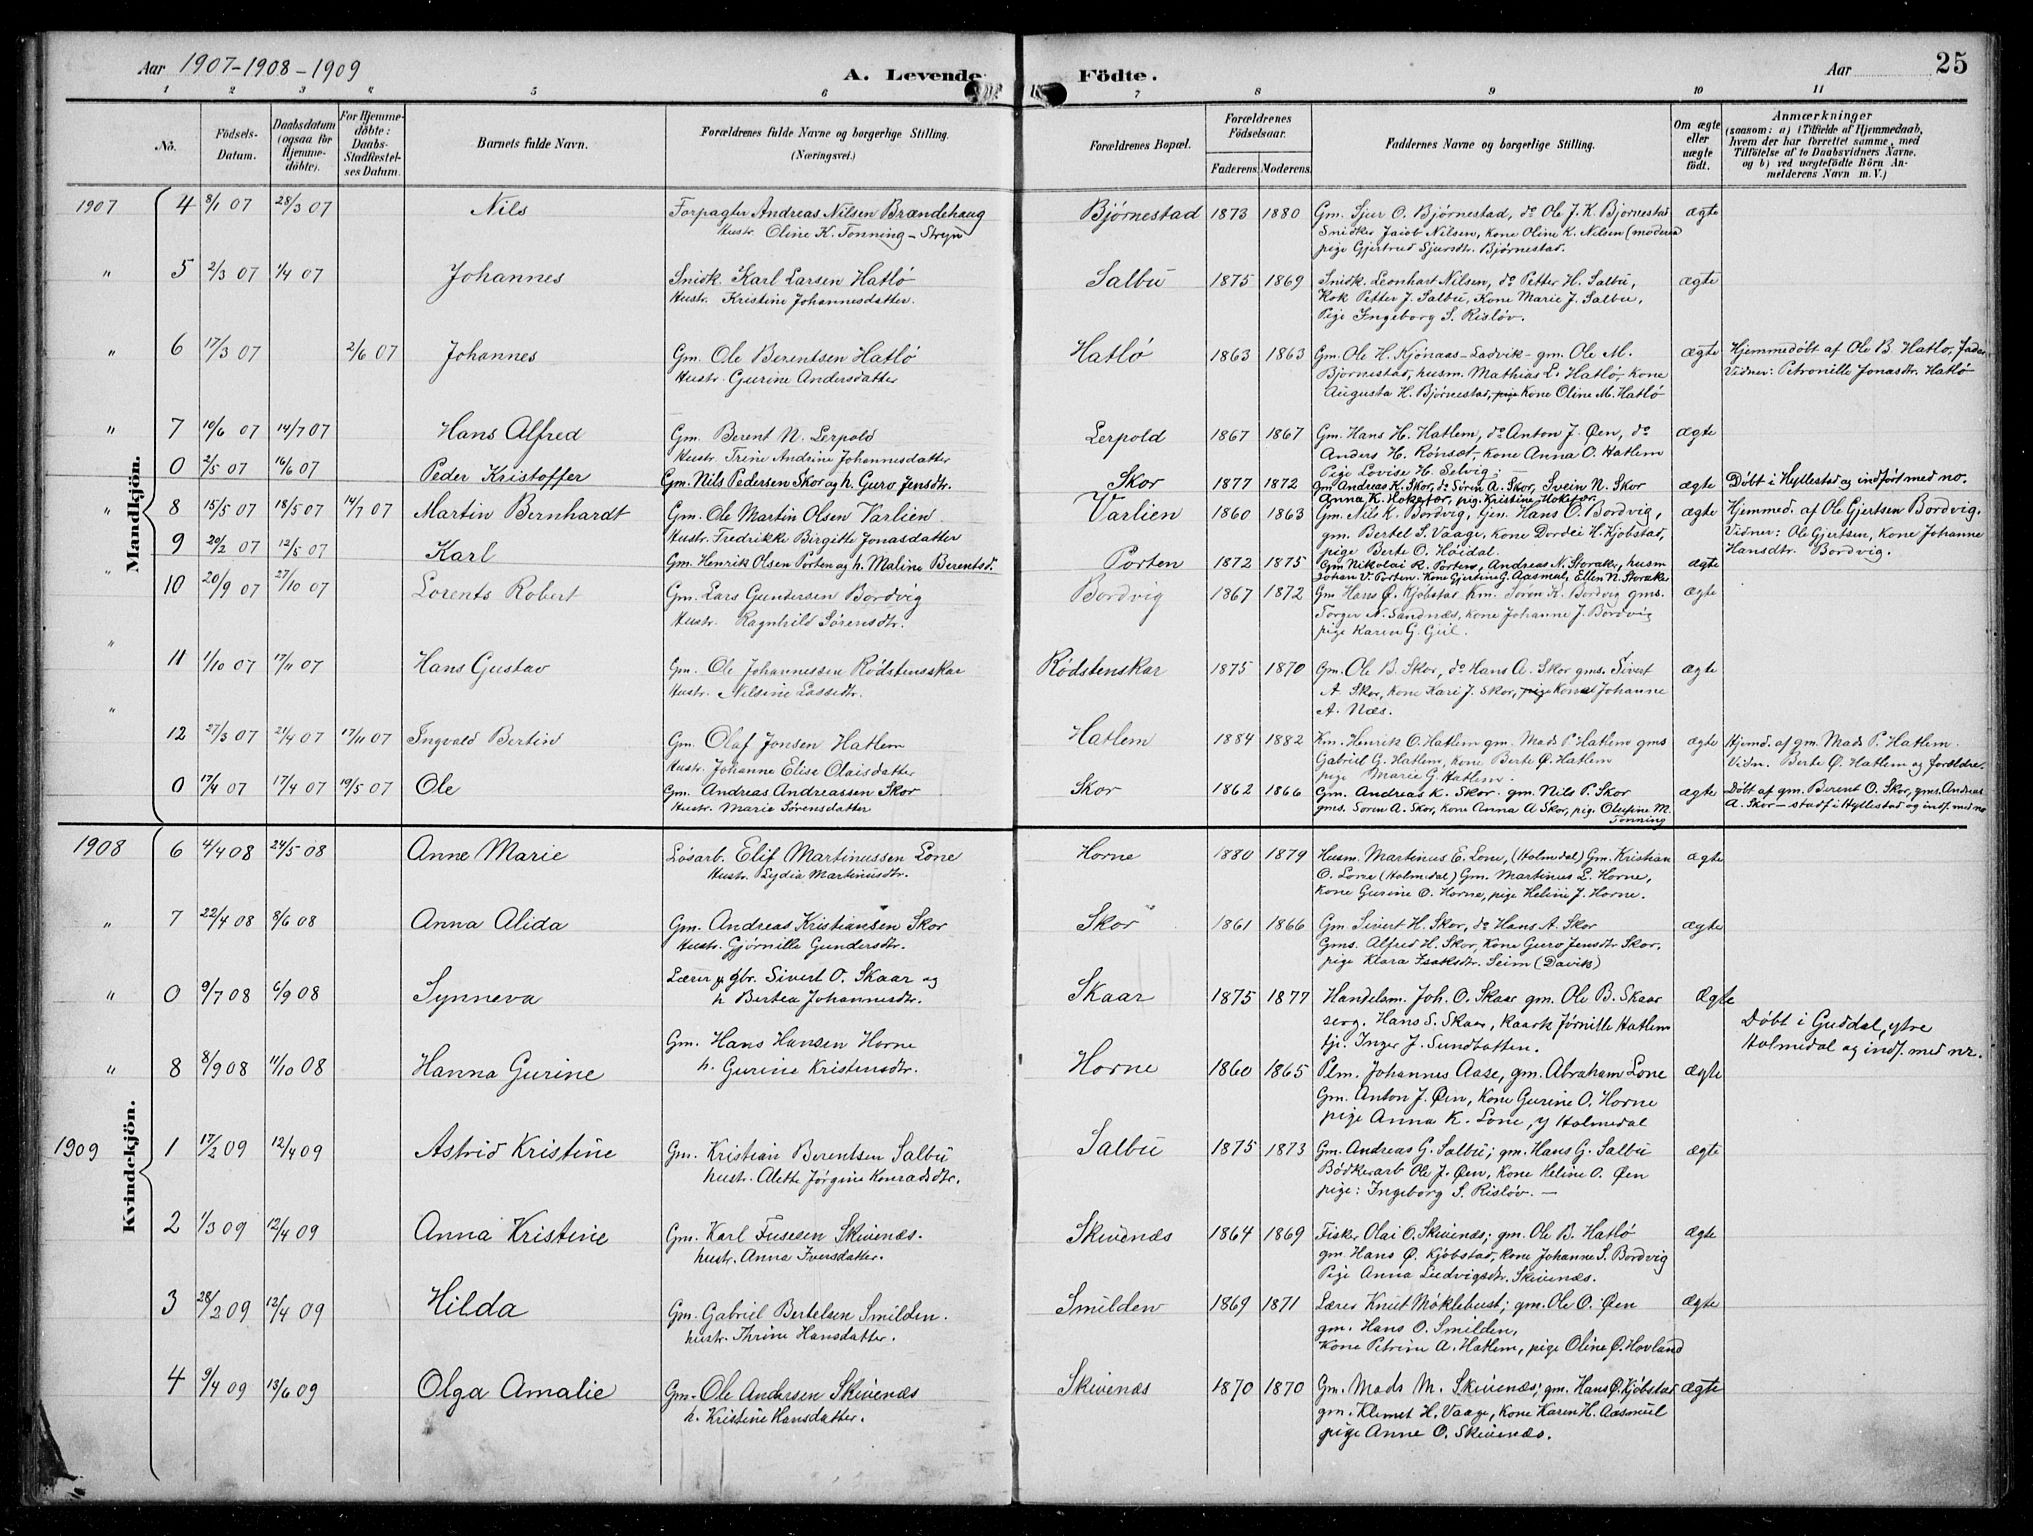 Aar 1907-1908-1909
A. Levende Födte.
Aar
25
1 2 3 4 5 6 7 8 9 10 11
No.
Födsels-Datum.
Daabsdatum (ogsaa for Hjemmedöbte).
For Hjemmedöbte: Daabs-Stadfæstelses Datum.
Barnets fulde Navn.
Forældrenes fulde Navne og borgerlige Stilling. (Næringsvei.)
Forældrenes Bopæl.
Forældrenes Födselsaar.
Faderens. Moderens.
Faddernes Navne og borgerlige Stilling.
Om ægte eller uægte födt.
Anmærkninger
(saasom: a) i Tilfælde af Hjemmedaab, hvem der har forrettet samme, med Tilföielse af to Daabsvidners Navne, og b) ved uægtefödte Börn Anmelderens Navn m. V.)
Mandkjön.
1907 4 8/1 07 28/3 07 Nils Forpagter Andreas Nilsen Brændehaug Bjørnestad 1873 1880 Gm. Sjur O. Bjørnestad, do Ole J. K. Bjørnestad ægte
Hustr. Oline K. Tonning - Stryn Snidker Jacob Nilsen, kone Oline K. Nilsen (moderen)
pige Gjertrud Sjursdtr. Bjørnestad.
" 5 2/3 07 1/4 07 Johannes Snidk. Karl Larsen Hatlö Salbu 1875 1869 Snidk. Leonhart Nilsen, do Petter H. Salbu, ægte
Hustr. Kristine Johannesdatter. Kok Petter J. Salbu, Kone Marie J. Salbu,
Pige Ingeborg S. Risløv.
" 6 17/3 07 2/6 07 Johannes Gm. Ole Berentsen Hatlö Hatlö 1863 1863 Gm. Ole H. Kjönaas - Ladvik - gm. Ole M. ægte Hjemmedöbt af Ole B. Hatlö, Fader
Hustr. Gurine Andersdatter Bjørnestad, husm. Mathias L. Hatlö, kone Vidner: Petronille Jonasdtr. Hatlö
Augusta H. Bjørnestad, pige Kone Oline M. Hatlö
" 7 10/6 07 14/7 07 Hans Alfred Gm. Berent N. Lerpold Lerpold 1867 1867 Gm. Hans H. Hatlem, do Anton J. Øen, do ægte
Hustr. Trine Andrine Johannesdatter Anders H. Rönset - kone Anna O. Hatlem
Pige Lovise H. Selvig; -
0 2/5 07 16/6 07 Peder Kristoffer Gm. Nils Pedersen Skor og h. Guro Jensdtr. Skor 1877 1872 Gm Andreas K. Skor, do Søren A. Skor, Svein N. Skor ægte Döbt i Hyllestad og indfört med no.
Anna K. Hoketær, pig. Kristine Hoketær.
" 8 15/5 07 18/5 07 14/7 07 Martin Bernhardt Gm. Ole Martin Olsen Varlien Varlien 1860 1863 Gm. Nils K. Bordvig, Gm. Hans O. Bordvig, ægte Hjemmed. af Ole Gjertsen Bordvig.
Hustr. Fredrikke Birgitte Jonasdatter gm. Bertel S. Vaage, Kone Dordei H. Kjobstad, Vidner: Ole Gjertsen, Kone Johanne
pige Berte O. Höidal. Hansdtr. Bordvig.
9 20/2 07 12/5 07 Karl Gm. Henrik Olsen Porten og h. Maline Berentsd. Porten 1872 1875 Gm Nikolai R. Porten, Andreas N. Storaker, husm ægte
Johan V. Porten, Kone Gjertine G. Aasmul, Ellen N. Storaker
" 10 20/9 07 27/10 07 Lorents Robert Gm. Lars Gundersen Bordvig Bordvig 1867 1872 Gm Hans Ø. Kjobstad Km. Søren K. Bordvig gms. ægte
Hustr. Ragnhild Sörensdtr. Torger N. Sandnæs, kone Johanne J. Bordvig
pige Karen G. Geil.
" 11 1/10 07 17/11 07 Hans Gustav Gm. Ole Johannessen Rödstensskar Rödstenskar 1875 1870 Gm. Ole B. Skor, do Hans A. Skor gms. Sivert ægte
Hustr. Nilsine Lassedtr. A. Skor, kone Kari J. Skor, pige Kone Johanne
A. Næs.
" 12 27/3 07 21/4 07 17/11 07 Ingvald Bertin Gm. Olaf Jonsen Hatlem Hatlem 1884 1882 Km. Henrik O. Hatlem gm. Mads P. Hatlem gms ægte Hjemd. af gm. Mads P. Hatlem.
Hustr. Johanne Elise Olaisdatter Gabriel G. Hatlem, kone Berte Ø. Hatlem Vidn. Berte Ø. Hatlem og forældre.
pige Marie G. Hatlem.
0 17/4 07 17/4 07 19/5 07 Ole Gm. Andreas Andreassen Skor Skor 1862 1866 Gm. Andreas K. Skor. gm. Nils P. Skor ægte Döbt af gm. Berent O. Skor, gms. Andreas
Hustr. Marie Sörensdatter gms. Sören A. Skor, kone Anna A Skor, pig. Olufine M. Tonning A. Skor - stadf. i Hyllestad og indf. med no
Kvindekjön.
1908 6 4/4 08 24/5 08 Anne Marie Løsarb. Elif Martinussen Lone Horne 1880 1879 Husm. Martinus E. Lone, (Holmedal) Gm. Kristian ægte
Hustr. Lydia Martinusdtr. O. Lone (Holmedal) Gm. Martinus L. Horne,
Kone Gurine O. Horne, pige Heline J. Horne.
" 7 22/4 08 8/6 08 Anna Alida Gm. Andreas Kristiansen Skor Skor 1861 1866 Gm Sivert H. Skor, do Hans A. Skor ægte
Hustr. Gjörnille Gundersdtr. Gms. Alfred H. Skor, Kone Guro Jensdtr Skor,
pige Klara Isaksdtr. Seim (Davik)
" 0 9/7 08 6/9 08 Synneva Lærer & gbr. Sivert O. Skaar og Skaar 1875 1877 Handelsm. Joh. O. Skaar gm. Ole B. Skaar Ægte
h Bertea Johannesdtr. serg. Hans S. Skaar, kaark Jörnille Hatlem Döbt i Guddal, ytre
tji. Inger J. Sundbotten. Holmedal og indf. med nr.
" 8 8/9 08 11/10 08 Hanna Gurine Gm. Hans Hansen Horne Horne 1860 1865 Plm. Johannes Aase, gm. Abraham Lone ægte
h. Gurine Kristensdtr. Gm. Anton J. Øen, Kone Gurine O. Horne
pige Anna K. Lone, y Holmedal
1909 1 17/2 09 12/4 09 Astrid Kristine Gm. Kristian Berentsen Salbu Salbu 1875 1873 Gm. Andreas G. Salbu; gm. Hans G. Salbu ægte
hustr. Alette Jørgine Konradsdtr. Bödkerarb Ole J. Øen, Kone Heline O. Øen
pige: Ingeborg S. Risløv. -
2 1/3 09 12/4 09 Anna Kristine Gm. Karl Fusesen Skivenæs. Skivenæs 1864 1869 Fisker Olai O. Skivenæs; gm. Ole B. Hatlö ægte
hustr. Anna Iversdatter. gm. Hans Ø. Kjøbstad, Kone Johanne S. Bordvig
Pige Anna Ludvigsdtr. Skivenæs.
3 28/2 09 12/4 09 Hilda Gm. Gabriel Bertelsen Smilden. Smilden 1869 1871 Lærer Knut Møklebust; gm. Ole O. Øen ægte
hustr. Thrine Hansdatter. gm. Hans O. Smilden,
Kone Petrine A. Hatlem, pige Oline Ø. Hovland
4 9/4 09 13/6 09 Olga Amalie Gm. Ole Andersen Skivenæs Skivenæs 1870 1870 Gm. Mads M. Skivenæs; gm. Hans Ø. Kjöbstad ægte
h. Kristine Hansdatter. gm. Klemet H. Vaage, Kone Karen H. Aasmul
pige Anne O. Skivenæs.